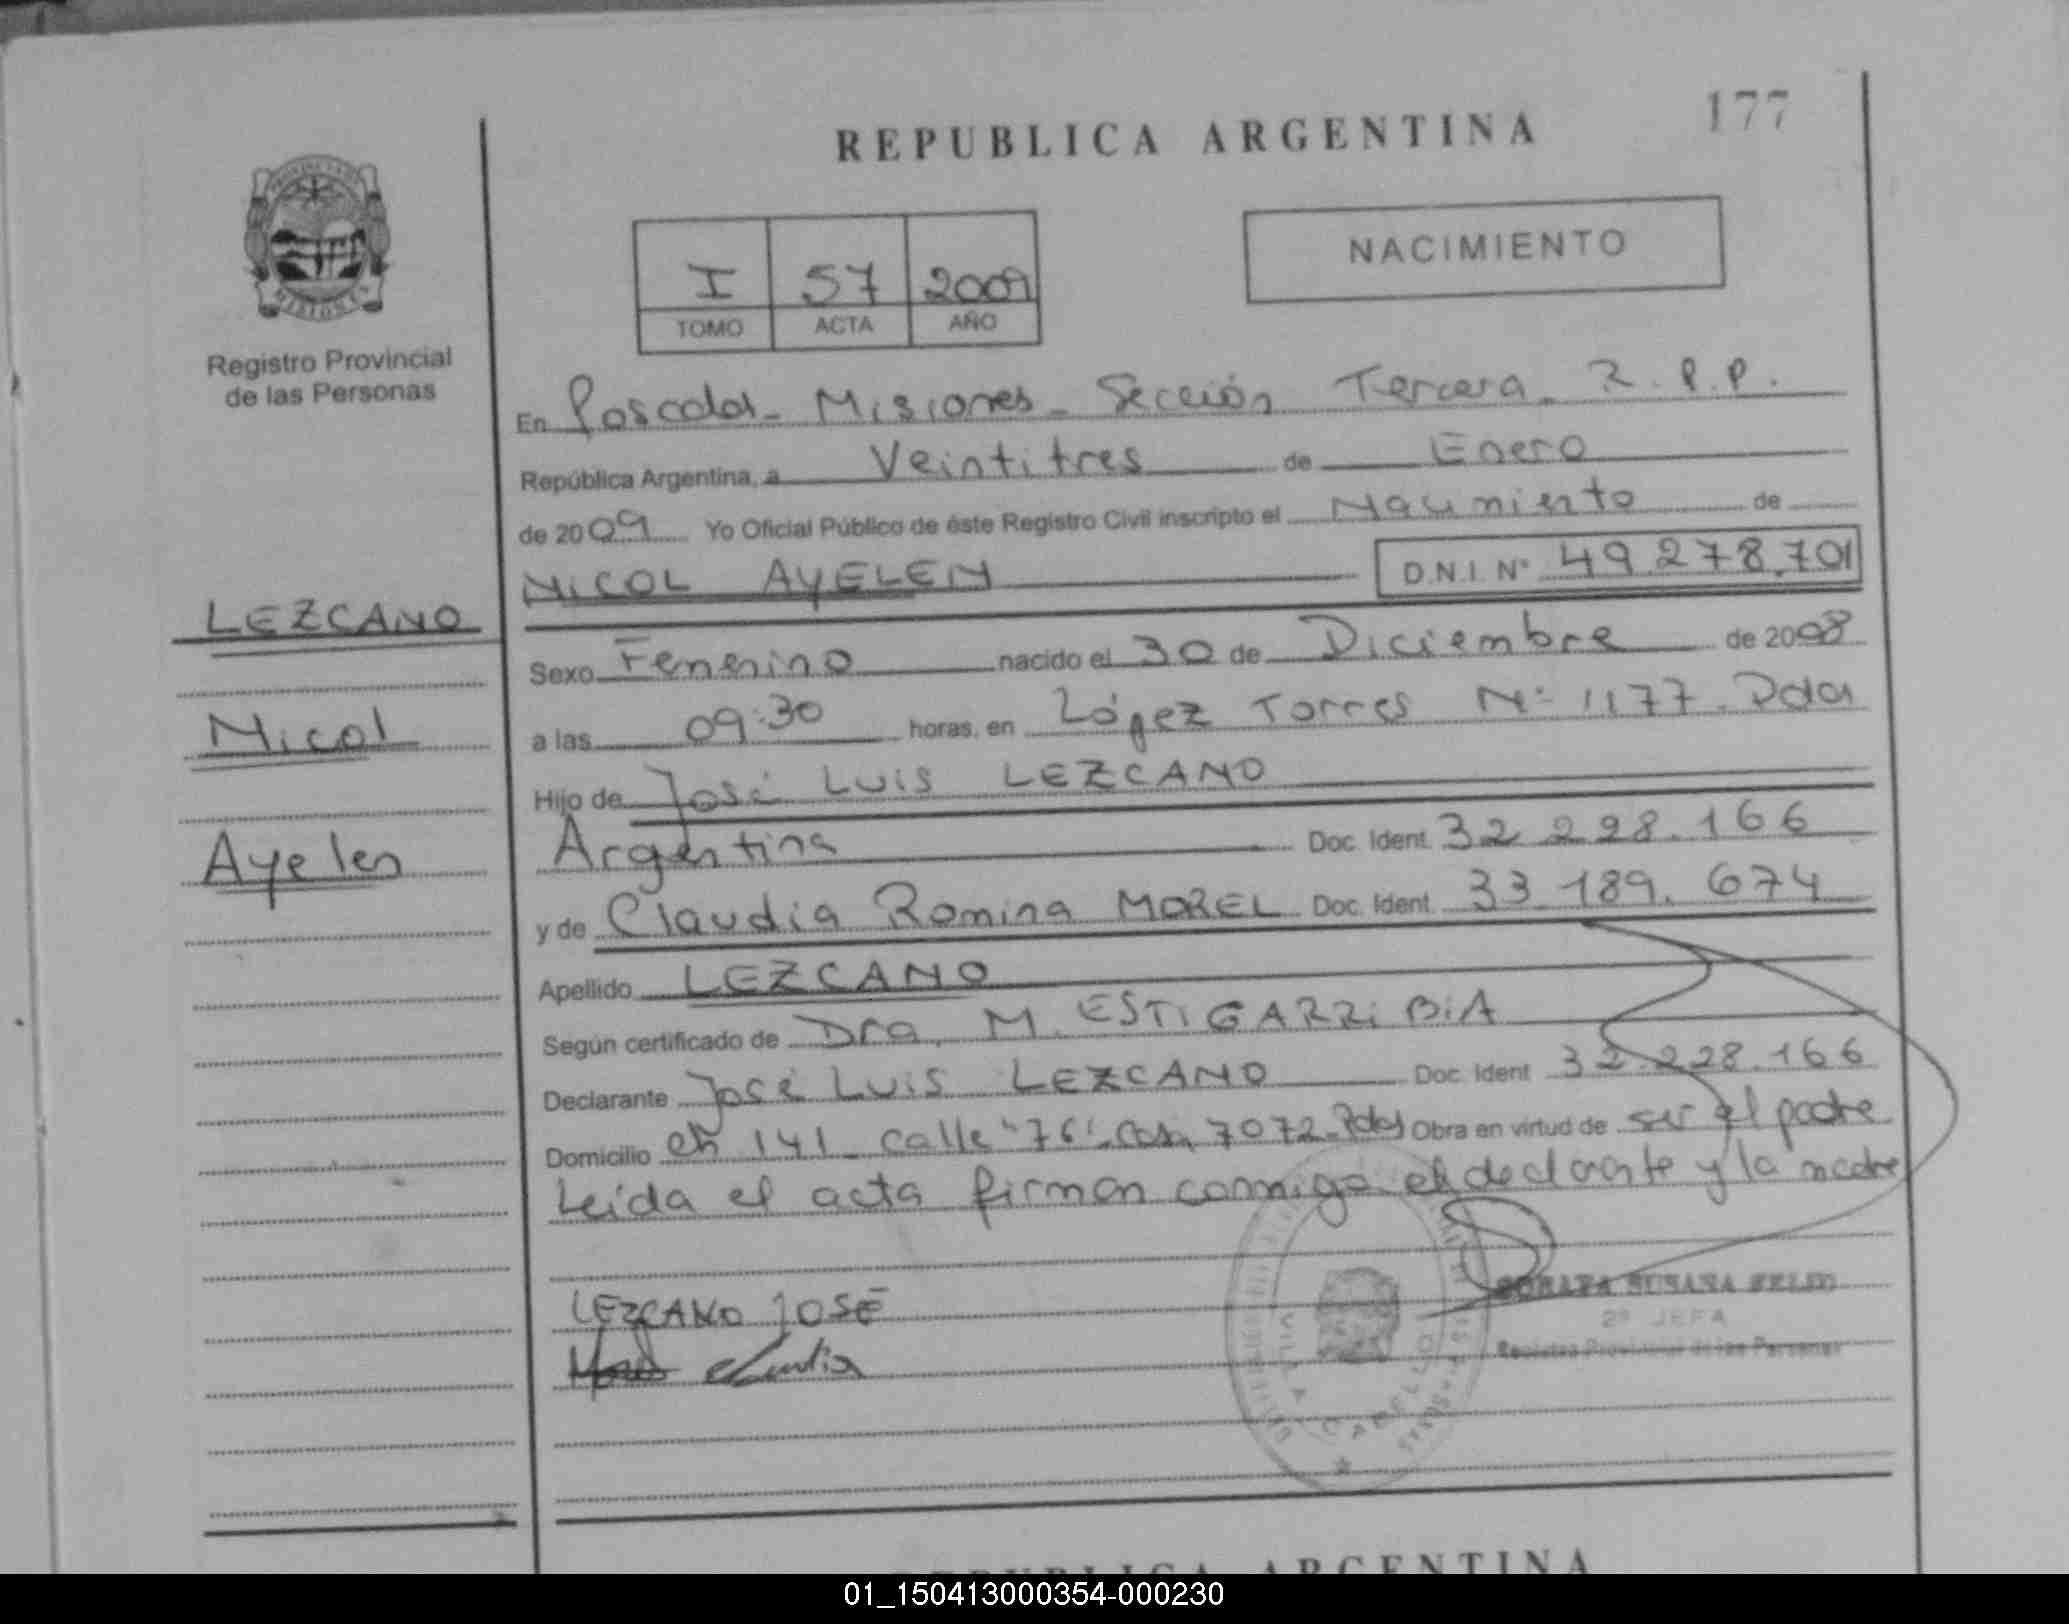 REPUBLICA ARGENTINA
177
NACIMIENTO
I 57 2009
TOMO ACTA AÑO
Registro Provincial
de las Personas
En Posadas - Misiones - Sección Tercera - R.P.P.
República Argentina, a Veintitres de Enero
de 2009 Yo Oficial Público de éste Registro Civil inscripto el Nacimiento de
NICOL AYELEN D.N.I. Nº 49.278.701
LEZCANO
Nicol
Ayelen
Sexo Femenino nacido el 30 de Diciembre de 2008
a las 09:30 horas, en López Torres Nº 1177. Pdas
Hijo de José Luis LEZCANO
Argentina Doc. Ident. 32.228.166
y de Claudia Romina MOREL Doc. Ident. 33.189.674
Apellido LEZCANO
Según certificado de Dra. M. ESTIGARRiBiA
Declarante José Luis LEZCANO Doc. Ident. 32.228.166
Domicilio ch 141 calle "76" cas. 7072. Pdas Obra en virtud de ser el padre
Leida el acta firman conmigo el declarante y la madre
LEZCANO JOSÉ
Claudia
SUSANA
2º JEFA
Registro Provincial de las Personas
VILLA CABELLO
REPUBLICA ARGENTINA
01_150413000354-000230